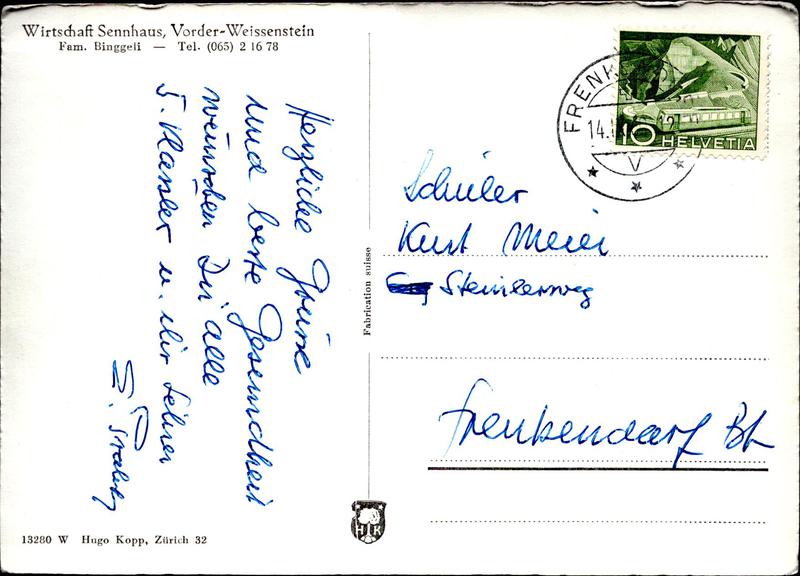 Wirtschaft Sennhaus, Vorder-Weissenstein
Fam. Binggeli — Tel. (065) 2 16 78
Herzliche Grüsse
und beste Gesundheit
wünschen Dir alle
5. Klässler u. ihr Lehrer
FRENK
14.
12
V
10 HELVETIA
Schüler
Kurt Meier
Steinlerweg
Frenkendorf BL
Fabrication suisse
HK
13280 W Hugo Kopp, Zürich 32